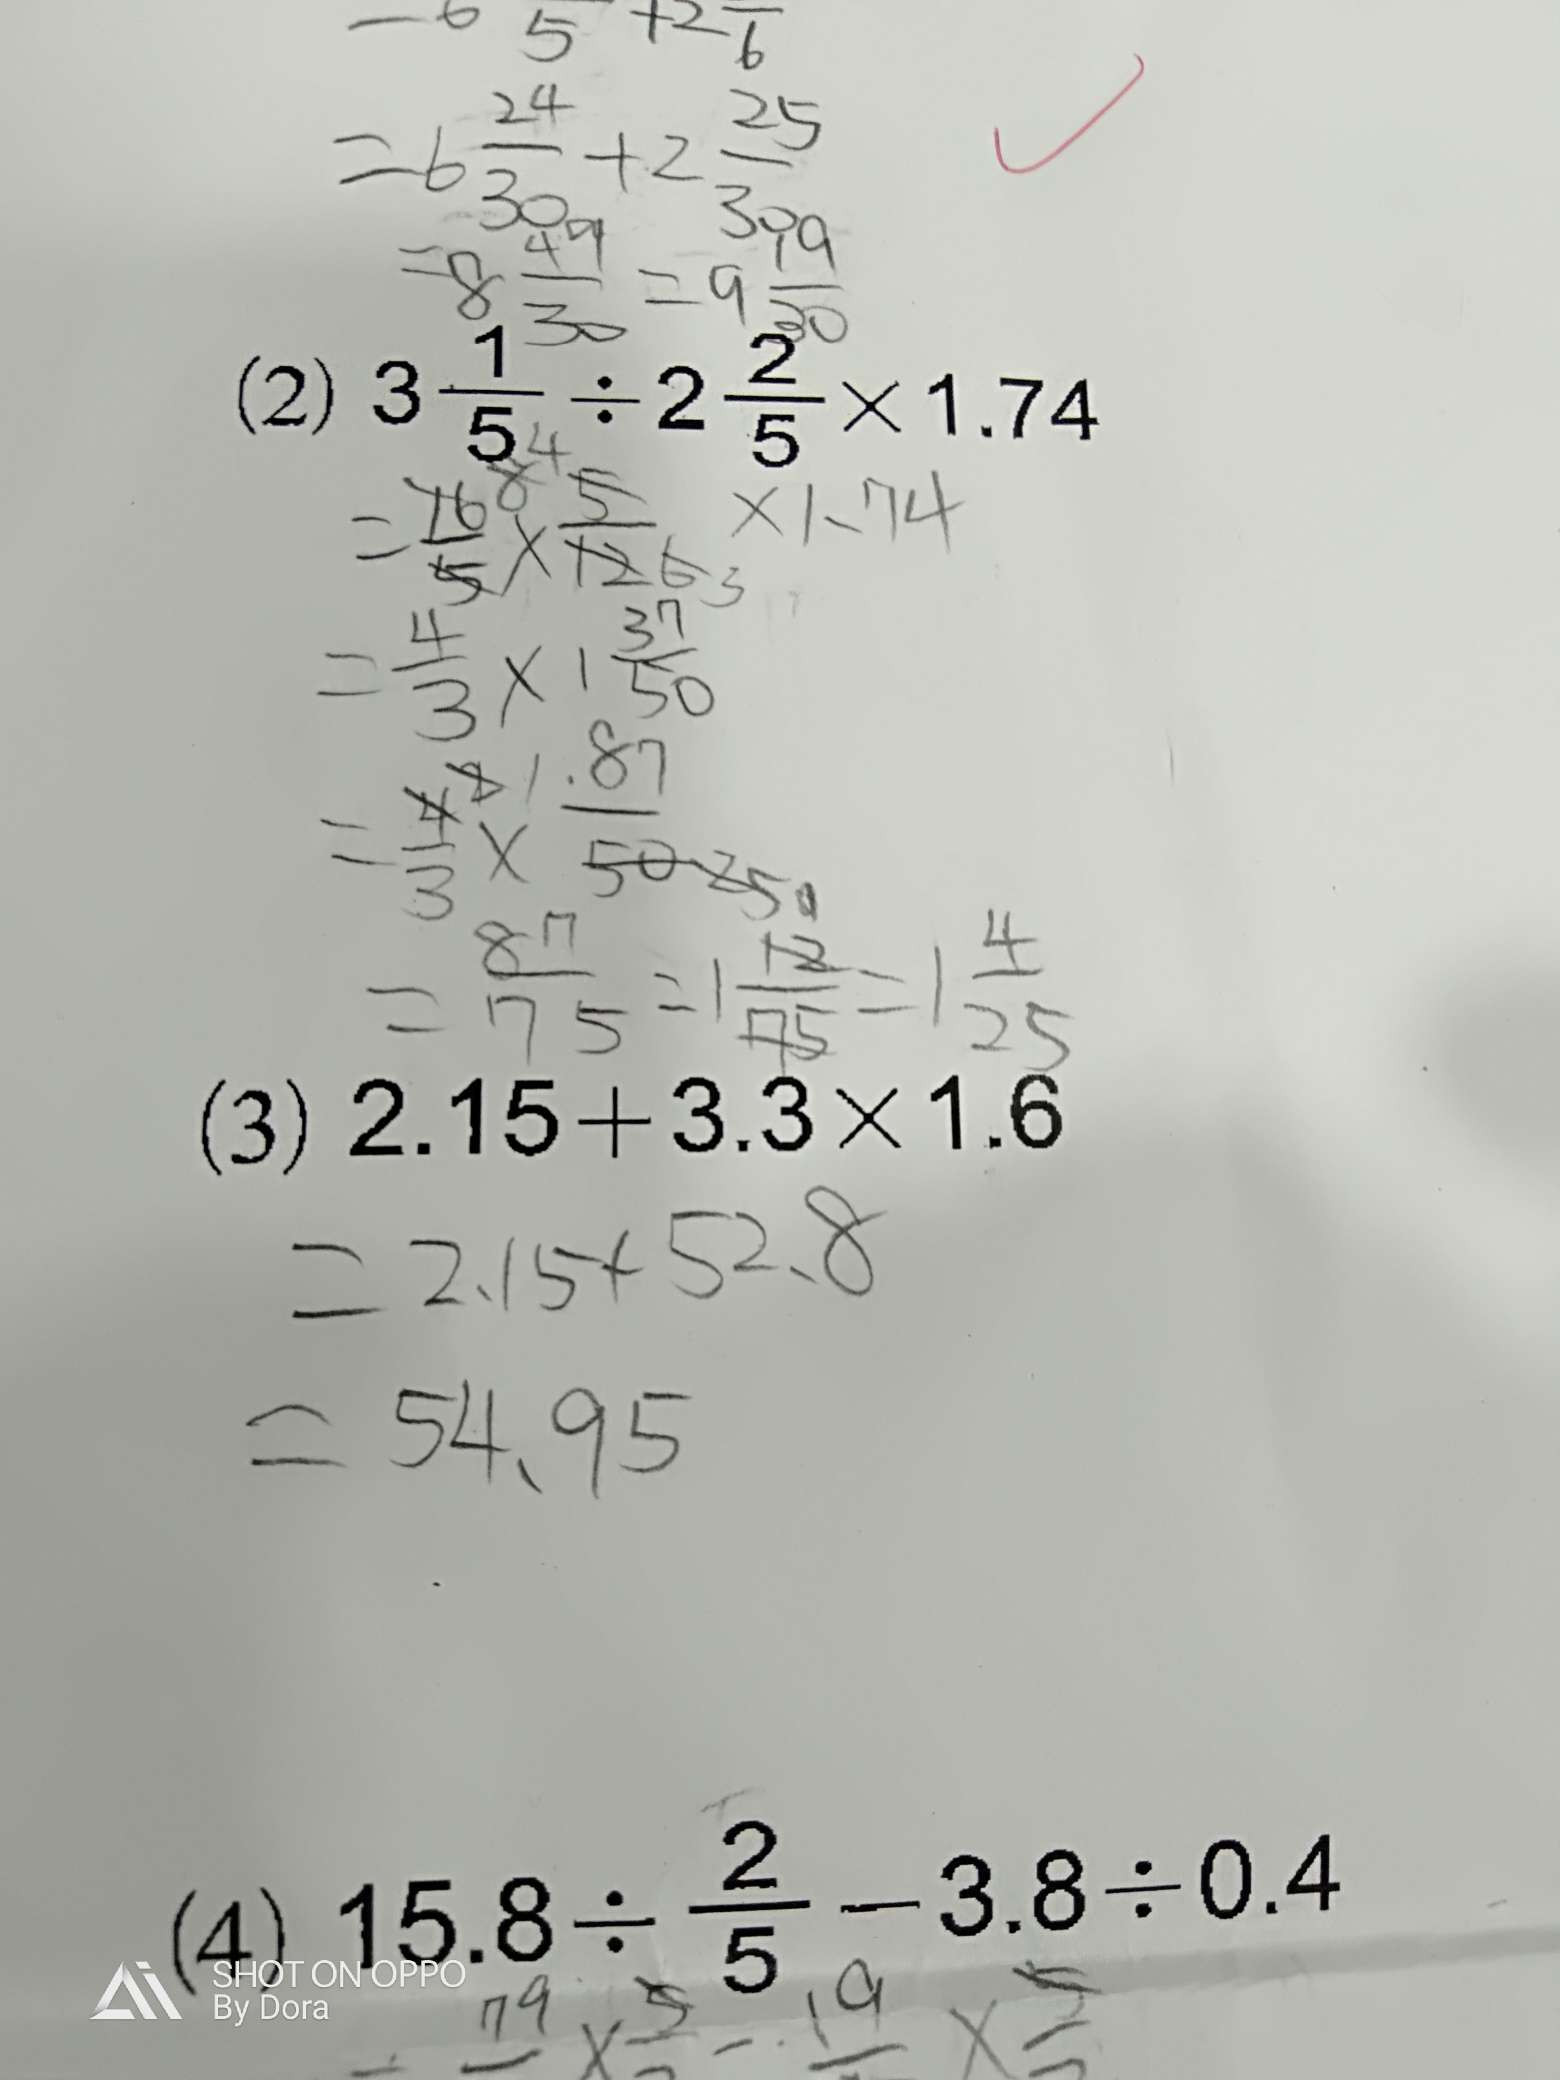 -6 /5 +2 /6
=6 24/30 +2 25/30
=8 49/30 =9 19/30
(2) 3 1/5 ÷2 2/5 ×1.74
=16/5 8 4 ×5/12 6 3 ×1.74
=4/3 ×1 37/50
=4/3 × 87/50 25
=87/75 =1 12/75 =1 4/25
(3) 2.15+3.3×1.6
=2.15+52.8
=54.95
(4) 15.8÷ 2/5 －3.8÷0.4
79 ×5 - 19 ×5
SHOT ON OPPO
By Dora